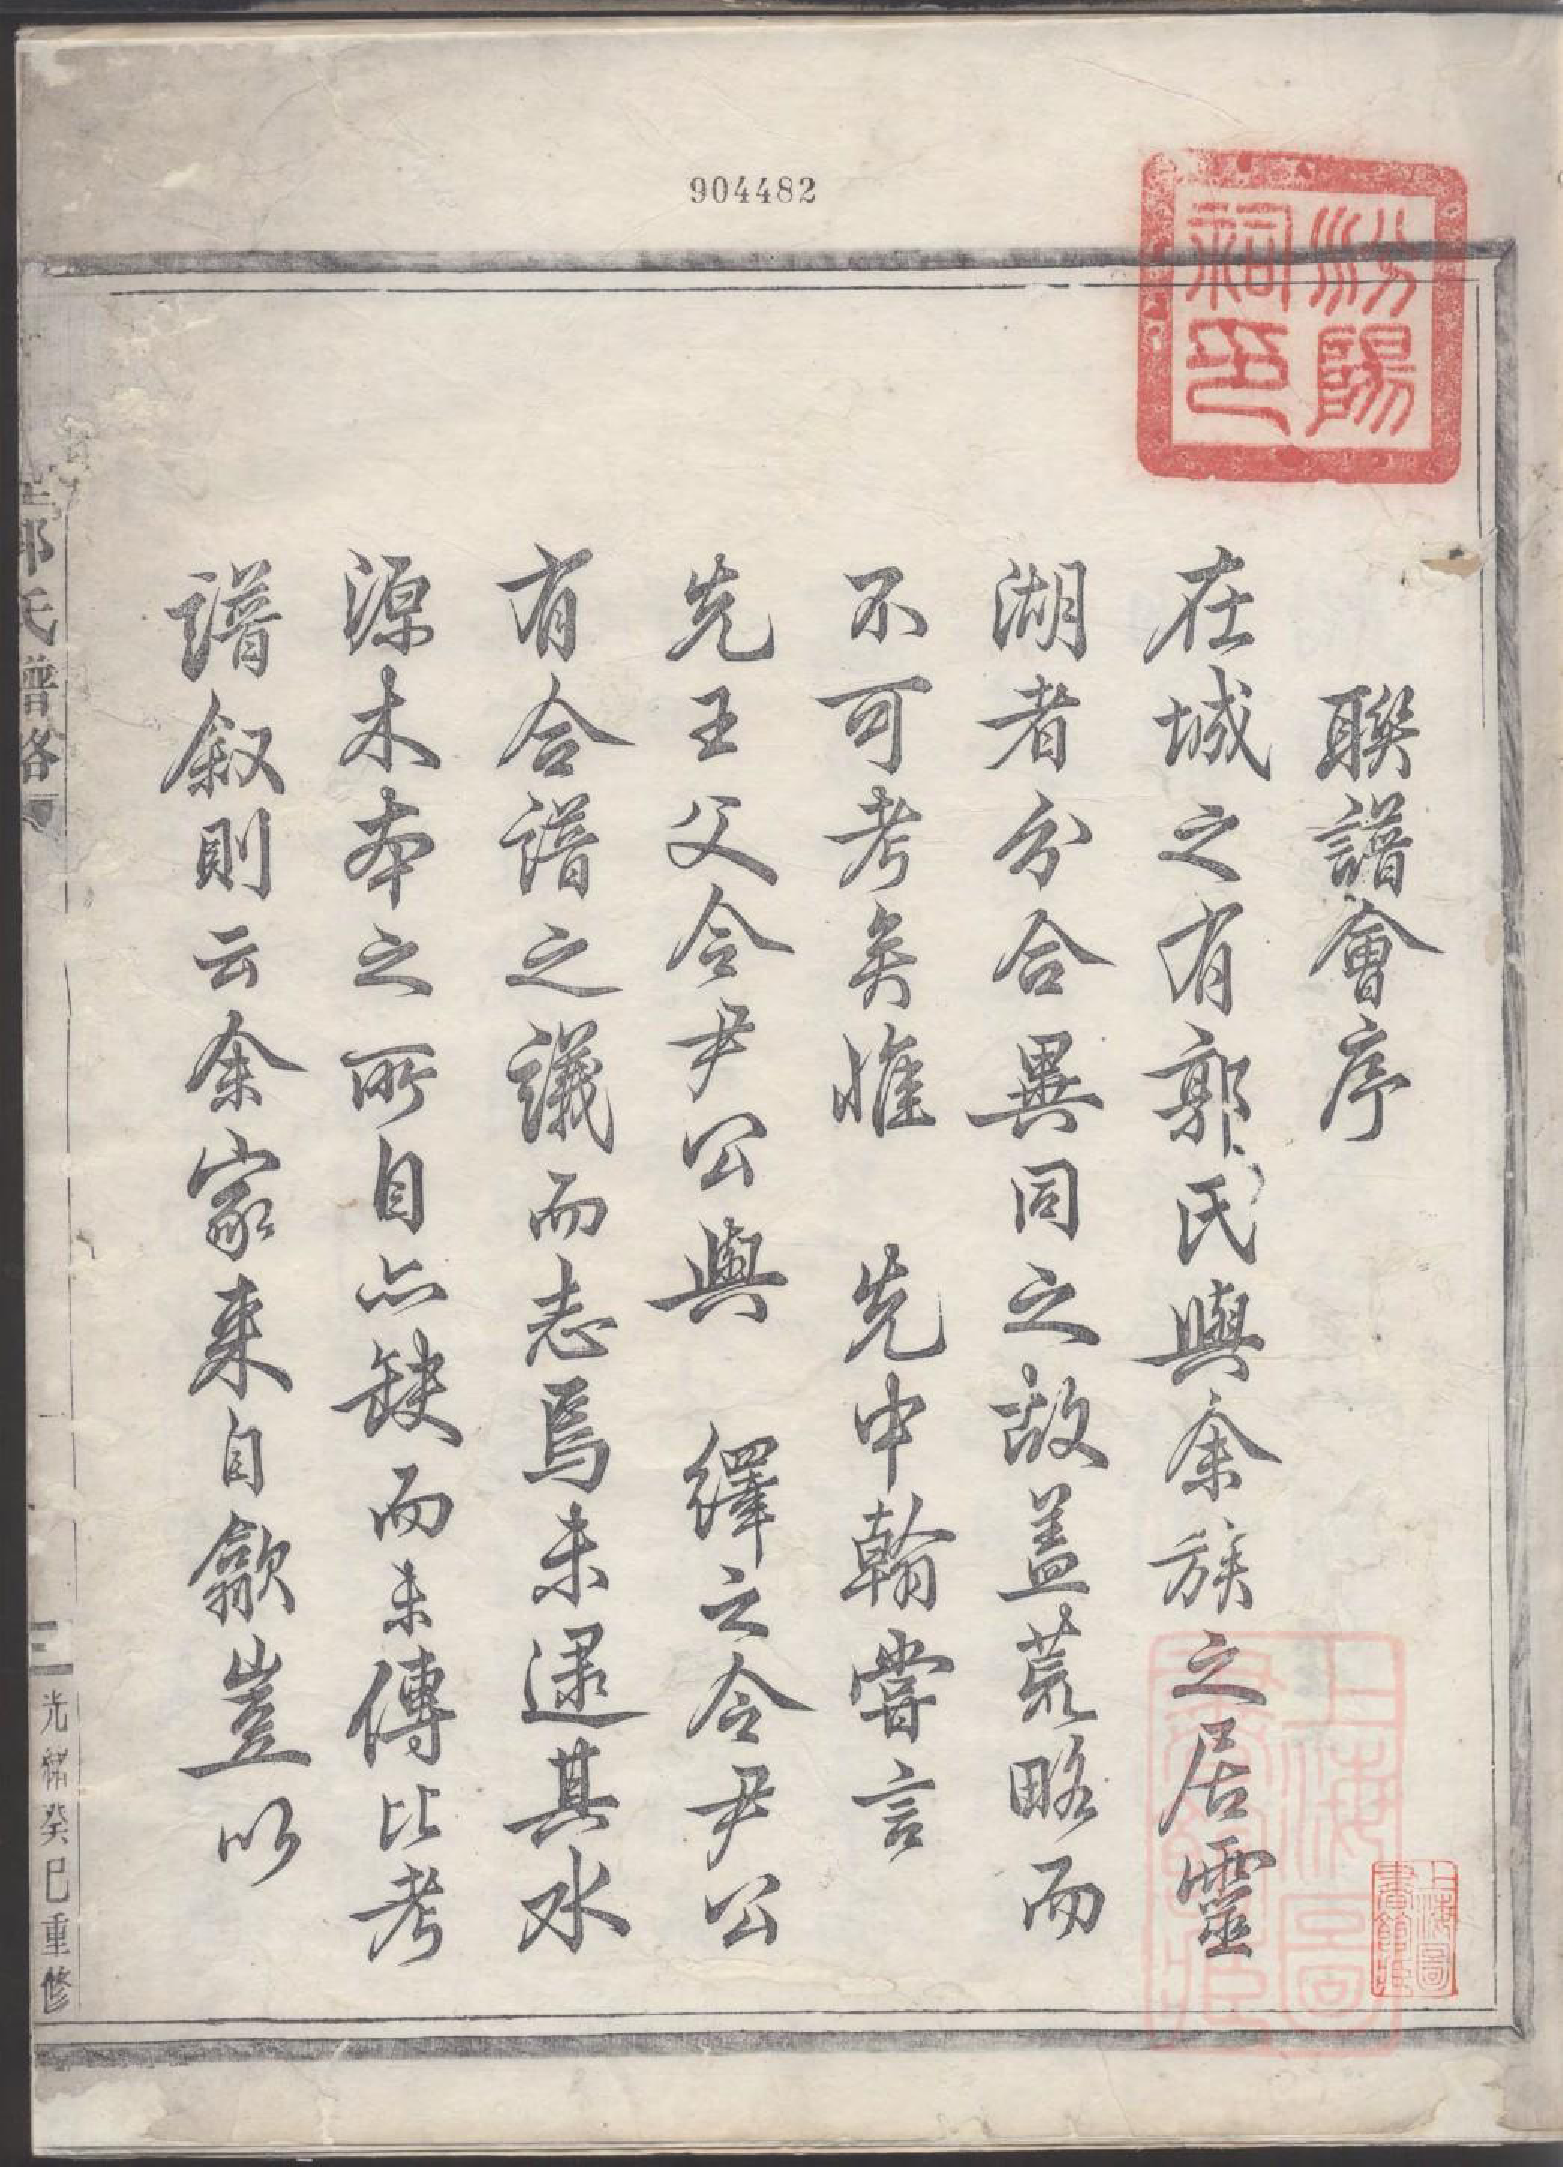 904482
汾陽
祠印
聯譜會序
在城之有郭氏與余族之居靈
湖者分合異同之故蓋荒略而
不可考矣惟 先中翰嘗言
先王父令尹公與 繹之令尹公
有合譜之議而志焉未逮其水
源木本之所自亦缺而未傳比考
譜叙則云余家来自歙豈以
郭氏譜畧
三
光緒癸巳重修
上海圖
書館藏
上海圖
書館藏